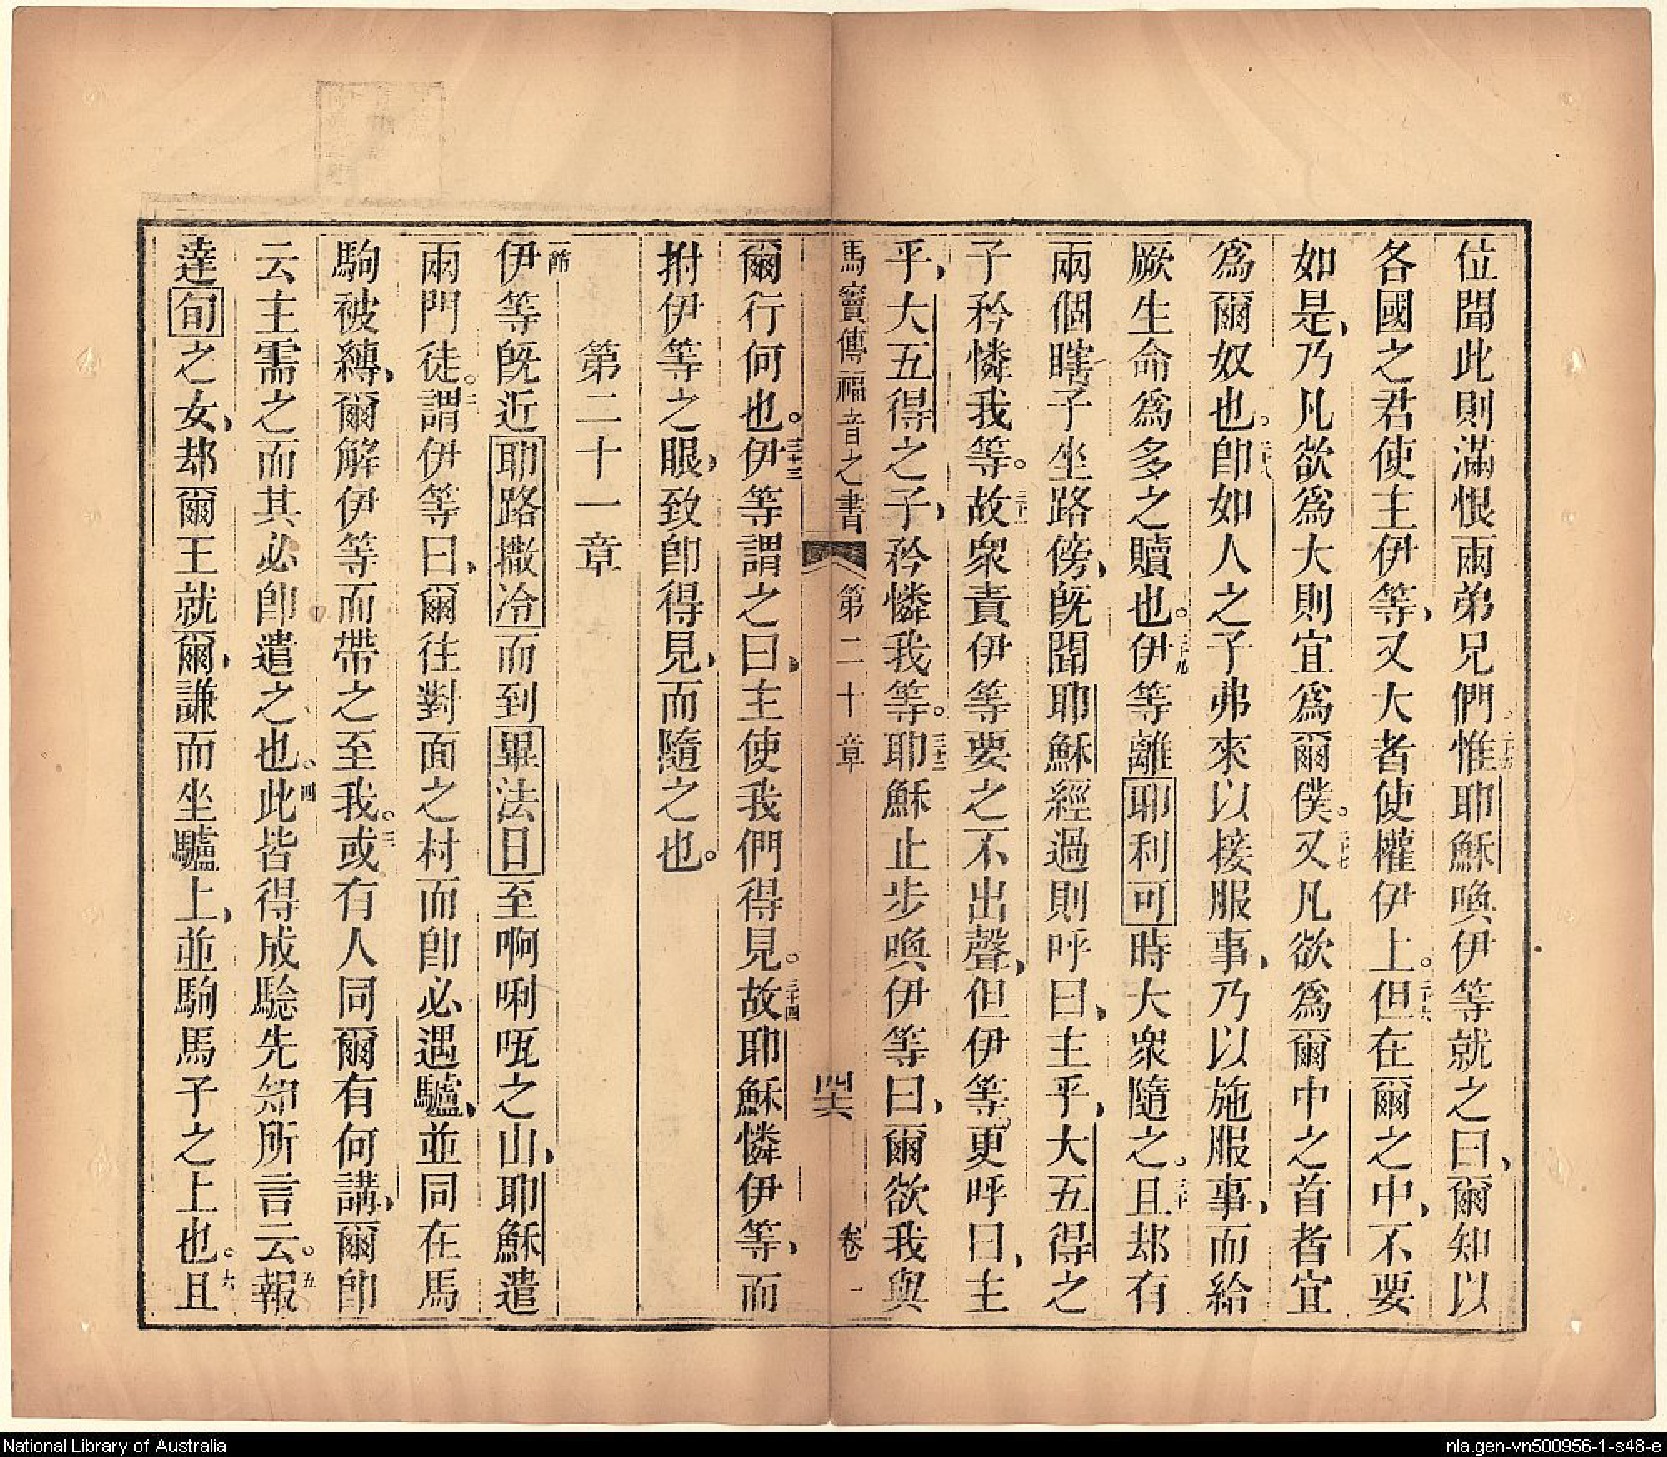 位聞此則滿恨兩弟兄們二十五惟耶穌喚伊等就之曰爾知以
各國之君使主伊等又大者使權伊上。二十六但在爾之中不要
如是乃凡欲爲大則宜爲爾僕。二十七又凡欲爲爾中之首者宜
爲爾奴也。二十八卽如人之子弗來以接服事乃以施服事而給
厥生命爲多之贖也。二十九伊等離耶利可時大衆隨之。三十且却有
兩個瞎子坐路傍旣聞耶穌經過則呼曰主乎大五得之
子矜憐我等。三十一故衆責伊等要之不出聲但伊等更呼曰主
乎大五得之子矜憐我等。三十二耶穌止步喚伊等曰爾欲我與
馬竇傳福音之書 第二十章 四六 卷一
爾行何也。三十三伊等謂之曰主使我們得見。三十四故耶穌憐伊等而
拊伊等之眼致卽得見而隨之也。
第二十一章
一節伊等旣近耶路撒冷而到畢法日至啊唎咓之山耶穌遣
兩門徒。二謂伊等曰爾往對面之村而卽必遇驢並同在馬
駒被縛爾解伊等而帶之至我。三或有人同爾有何講爾卽
云主需之而其必卽遣之也。四此皆得成驗先知所言云。五報
達旬之女却爾王就爾謙而坐驢上並駒馬子之上也。六且
National Library of Australia
nla.gen-vn500956-1-s48-e